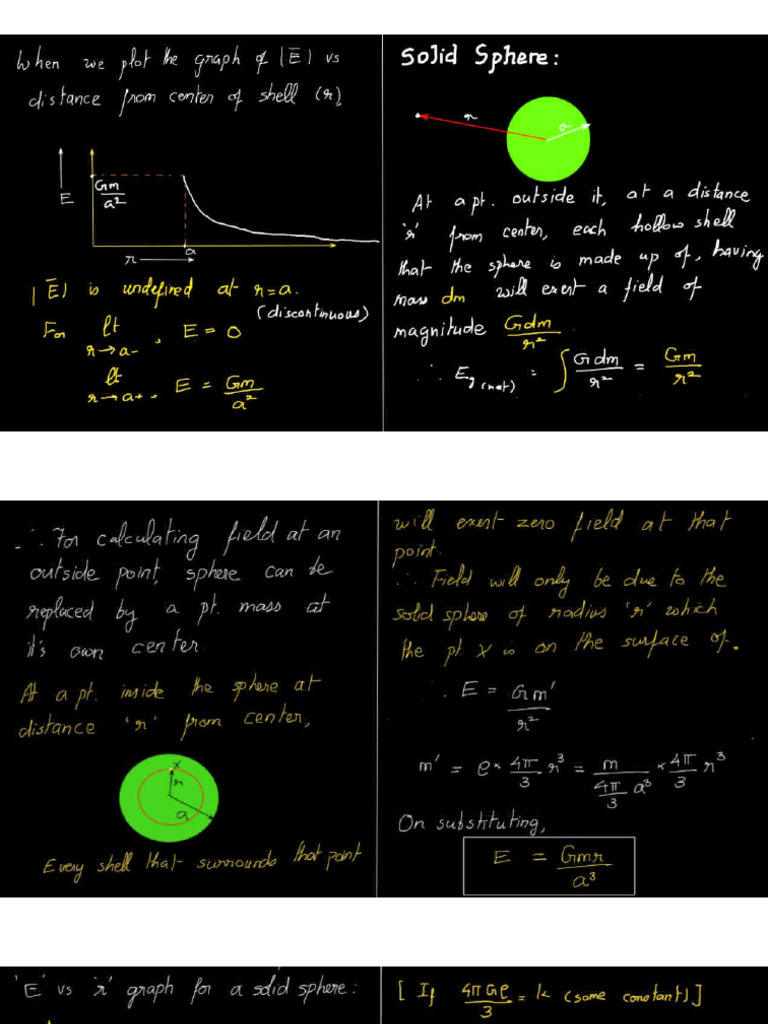 When we plot the graph of |E̅| vs
distance from center of shell (r)
E
Gm
a²
a
r
|E̅| is undefined at r=a.
(discontinuous)
For lt r→a-, E = 0
lt r→a+, E = Gm/a²
Solid Sphere:
r
a
At a pt. outside it, at a distance
'r' from center, each hollow shell
that the sphere is made up of, having
mass dm will exert a field of
magnitude Gdm/r²
∴ Eg(net) = ∫ Gdm/r² = Gm/r²
∴ For calculating field at an
outside point, sphere can be
replaced by a pt. mass at
it's own center.
At a pt. inside the sphere at
distance 'r' from center,
x
r
a
Every shell that surrounds that point
will exert zero field at that
point.
∴ Field will only be due to the
solid sphere of radius 'r' which
the pt X is on the surface of.
∴ E = Gm'/r²
m' = ρ × 4π/3 r³ = m/(4π/3 a³) × 4π/3 r³
On substituting,
E = Gmr/a³
'E' vs 'r' graph for a solid sphere:
[ If 4πGρ/3 = k (some constant)]